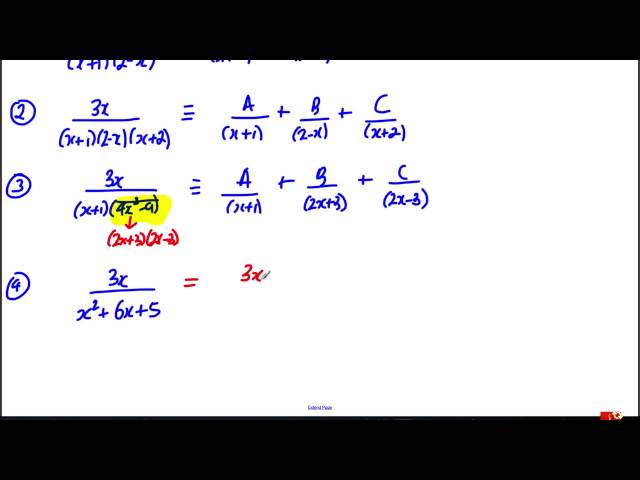 (x+1)(2-x)
② 3x / (x+1)(2-x)(x+2) ≡ A/(x+1) + B/(2-x) + C/(x+2)
③ 3x / (x+1)(4x²-9) ≡ A/(x+1) + B/(2x+3) + C/(2x-3)
(2x+3)(2x-3)
④ 3x / x²+6x+5 = 3x
Extend Page